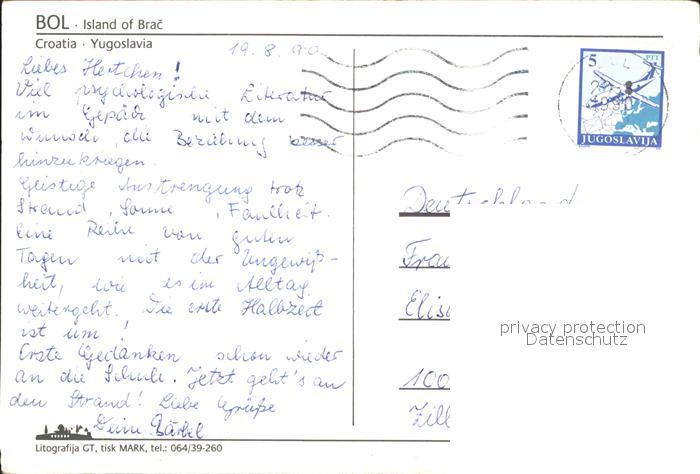 BOL · Island of Brač
Croatia · Yugoslavia
19.8.90
Liebes Hertchen!
Viel psychologische Literatur
im Gepäck mit dem
Wunsch, die Beziehung besser
hinzukriegen.
Geistige Anstrengung trotz
Strand, Sonne, Faulheit.
Eine Reihe von guten
Tagen mit der Ungewiß-
heit, wie es im Alltag
weitergeht. Die erste Halbzeit
ist um!
Erste Gedanken schon wieder
an die Schule. Jetzt geht's an
den Strand! Liebe Grüße
Deine Bärbel
Litografija GT, tisk MARK, tel.: 064/39-260
5 PTT
JUGOSLAVIJA
Deutschland
Frau
Elis
100
Zill
privacy protection
Datenschutz